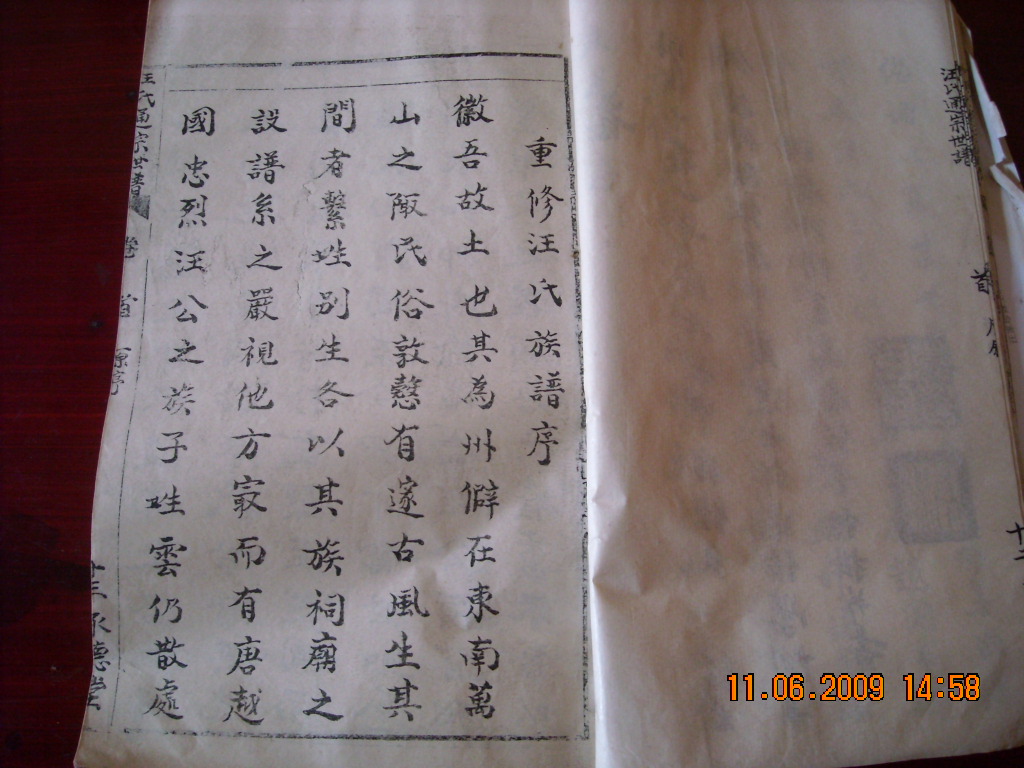 汪氏通宗世譜
首
十二
重修汪氏族譜序
徽吾故土也其為州僻在東南萬
山之陬民俗敦慤有邃古風生其
間者繫姓别生各以其族祠廟之
設譜系之嚴視他方㝡而有唐越
國忠烈汪公之族子姓雲仍散處
汪氏通宗世譜
卷
首
原序
十三承德堂
11.06.2009 14:58